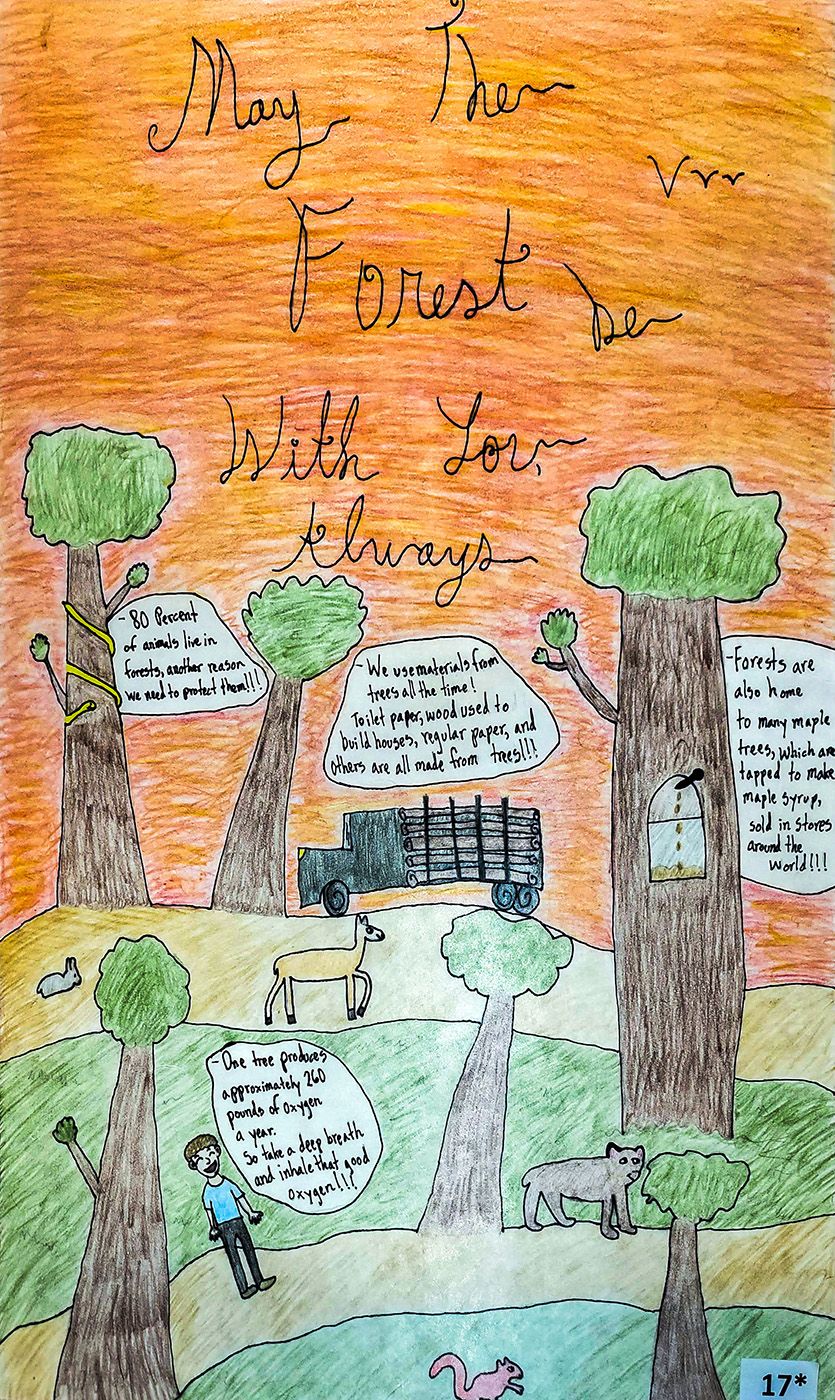 May The
Forest be
With You
Always
- 80 Percent
of animals live in
forests, another reason
we need to protect them!!!
- We use materials from
trees all the time!
Toilet paper, wood used to
build houses, regular paper, and
others are all made from trees!!!
- Forests are
also home
to many maple
trees, which are
tapped to make
maple syrup,
sold in stores
around the
world!!!
- One tree produces
approximately 260
pounds of oxygen
a year.
So take a deep breath
and inhale that good
oxygen!!!
17*